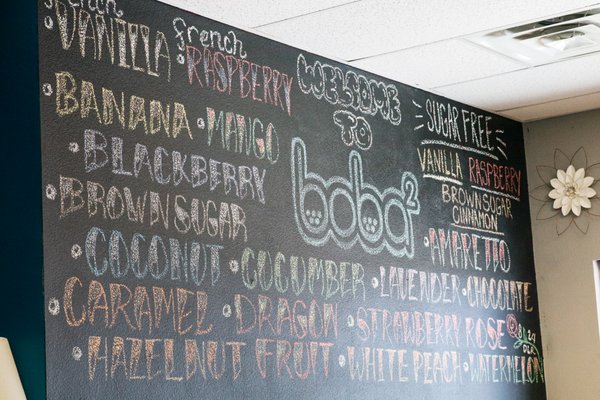 french
VANILLA
french
RASPBERRY
BANANA • MANGO
BLACKBERRY
BROWN SUGAR
COCONUT • CUCUMBER
CARAMEL • DRAGON FRUIT
HAZELNUT
WELCOME
TO
boba²
SUGAR FREE
VANILLA RASPBERRY
BROWN SUGAR
CINNAMON
AMARETTO
LAVENDER • CHOCOLATE
STRAWBERRY ROSE
WHITE PEACH • WATERMELON